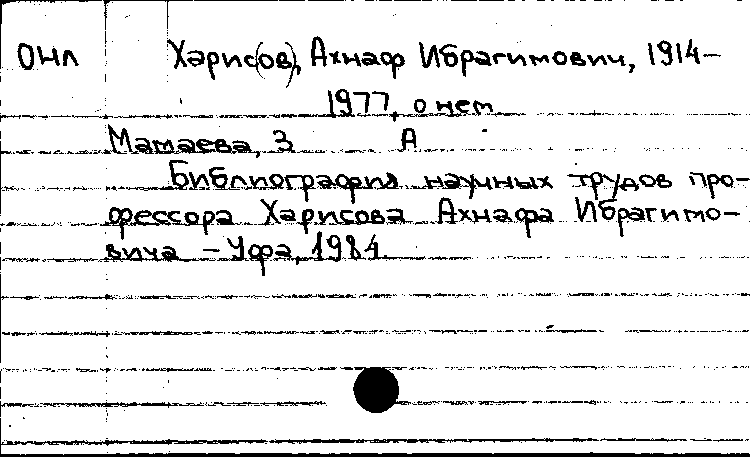 ОНЛ Харис(ов), Ахнаф Ибрагимович, 1914–
1977, о нем
Мамаева, З А
Библиография научных трудов про-
фессора Харисова Ахнафа Ибрагимо-
вича – Уфа, 1984.